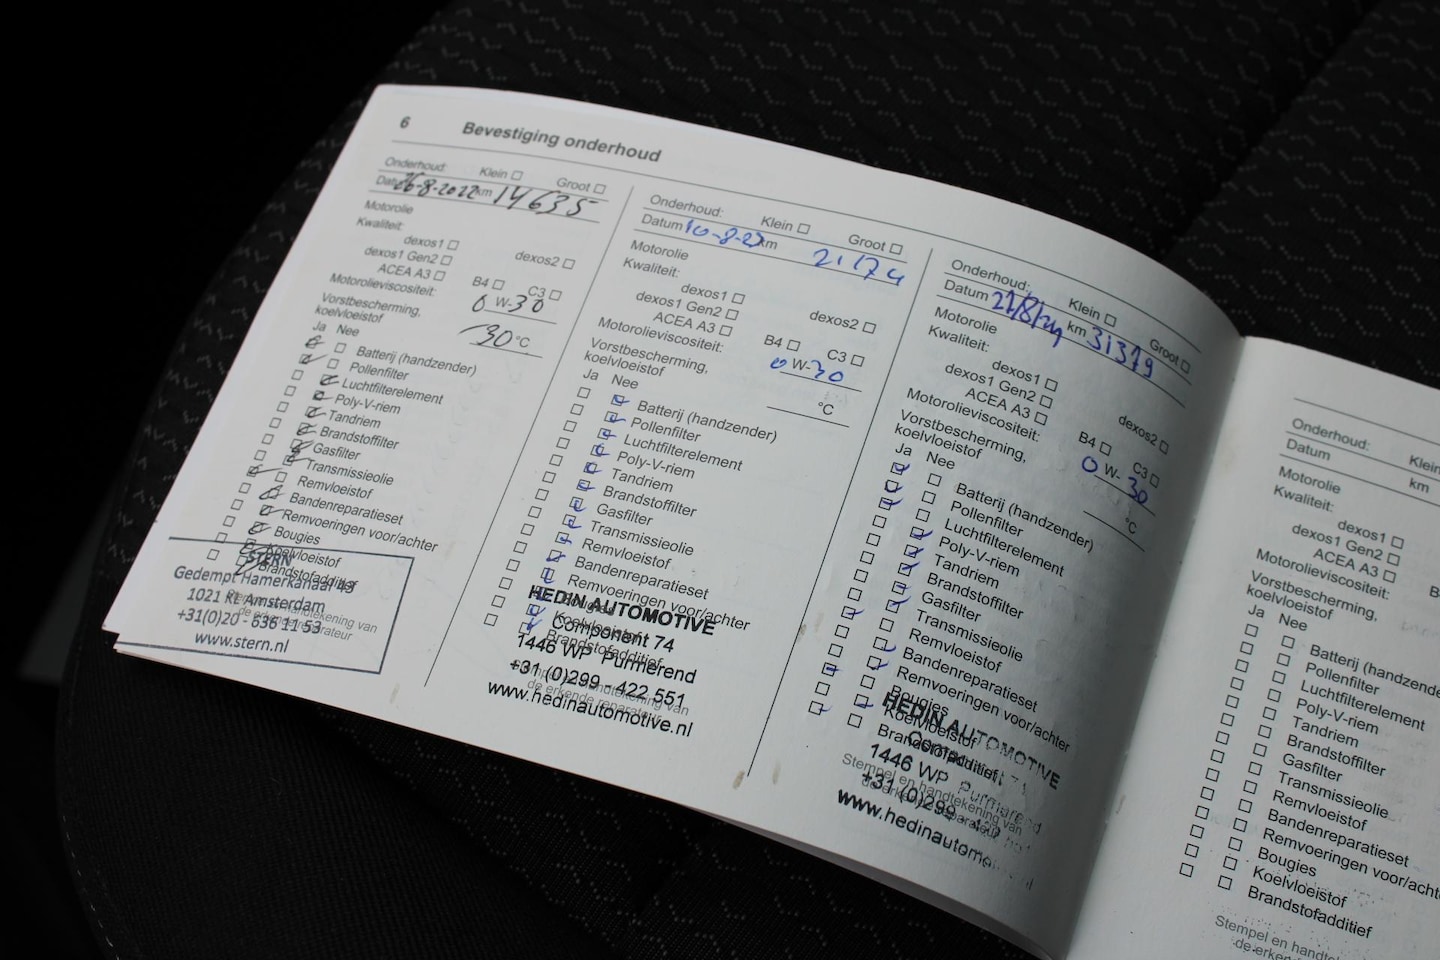 6 Bevestiging onderhoud
Onderhoud: Klein Groot
Datum 26-8-2022 km 14635
Motorolie
Kwaliteit:
dexos1
dexos1 Gen2 dexos2
ACEA A3 B4 C3
Motorolieviscositeit: 0 W-30
Vorstbescherming,
koelvloeistof 30 °C
Ja Nee
Batterij (handzender)
Pollenfilter
Luchtfilterelement
Poly-V-riem
Tandriem
Brandstoffilter
Gasfilter
Transmissieolie
Remvloeistof
Bandenreparatieset
Remvoeringen voor/achter
Bougies
Koelvloeistof
Brandstofadditief
Stempel en handtekening van
de erkende reparateur
STERN
Gedempt Hamerkanaal 43
1021 KL Amsterdam
+31(0)20 - 636 11 53
www.stern.nl
Onderhoud: Klein Groot
Datum 10-8-23 km 21174
Motorolie
Kwaliteit:
dexos1
dexos1 Gen2 dexos2
ACEA A3 B4 C3
Motorolieviscositeit: 0 W-30
Vorstbescherming,
koelvloeistof °C
Ja Nee
Batterij (handzender)
Pollenfilter
Luchtfilterelement
Poly-V-riem
Tandriem
Brandstoffilter
Gasfilter
Transmissieolie
Remvloeistof
Bandenreparatieset
Remvoeringen voor/achter
Bougies
Koelvloeistof
Brandstofadditief
Stempel en handtekening van
de erkende reparateur
HEDIN AUTOMOTIVE
Component 74
1446 WP Purmerend
+31 (0)299 - 422 551
www.hedinautomotive.nl
Onderhoud: Klein Groot
Datum 21/8/24 km 31379
Motorolie
Kwaliteit:
dexos1
dexos1 Gen2 dexos2
ACEA A3 B4 C3
Motorolieviscositeit: 0 W-30
Vorstbescherming,
koelvloeistof °C
Ja Nee
Batterij (handzender)
Pollenfilter
Luchtfilterelement
Poly-V-riem
Tandriem
Brandstoffilter
Gasfilter
Transmissieolie
Remvloeistof
Bandenreparatieset
Remvoeringen voor/achter
Bougies
Koelvloeistof
Brandstofadditief
Stempel en handtekening van
de erkende reparateur
HEDIN AUTOMOTIVE
1446 WP Purmerend
+31 (0)299
www.hedinautomo
Onderhoud: Klein
Datum km
Motorolie
Kwaliteit:
dexos1
dexos1 Gen2
ACEA A3 B
Motorolieviscositeit:
Vorstbescherming,
koelvloeistof
Ja Nee
Batterij (handzende
Pollenfilter
Luchtfilterelement
Poly-V-riem
Tandriem
Brandstoffilter
Gasfilter
Transmissieolie
Remvloeistof
Bandenreparatieset
Remvoeringen voor/acht
Bougies
Koelvloeistof
Brandstofadditief
Stempel en handte
de erken